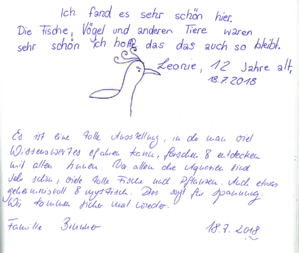 Ich fand es sehr schön hier.
Die Fische, Vögel und anderen Tiere waren
sehr schön ich hoffe das das auch so bleibt.
Leonie, 12 Jahre alt,
18.7.2018
Es ist eine tolle Ausstellung, in de man viel
Wissenswertes erfahren kann, forschen & entdecken
mit allen Sinnen. Vor allem die Aquarien sind
sehr schön, viele tolle Fische und Pflanzen. Auch etwas
geheimnisvoll & mystisch. Das sorgt für Spannung
Wir kommen sicher mal wieder.
Familie 18.7.2018